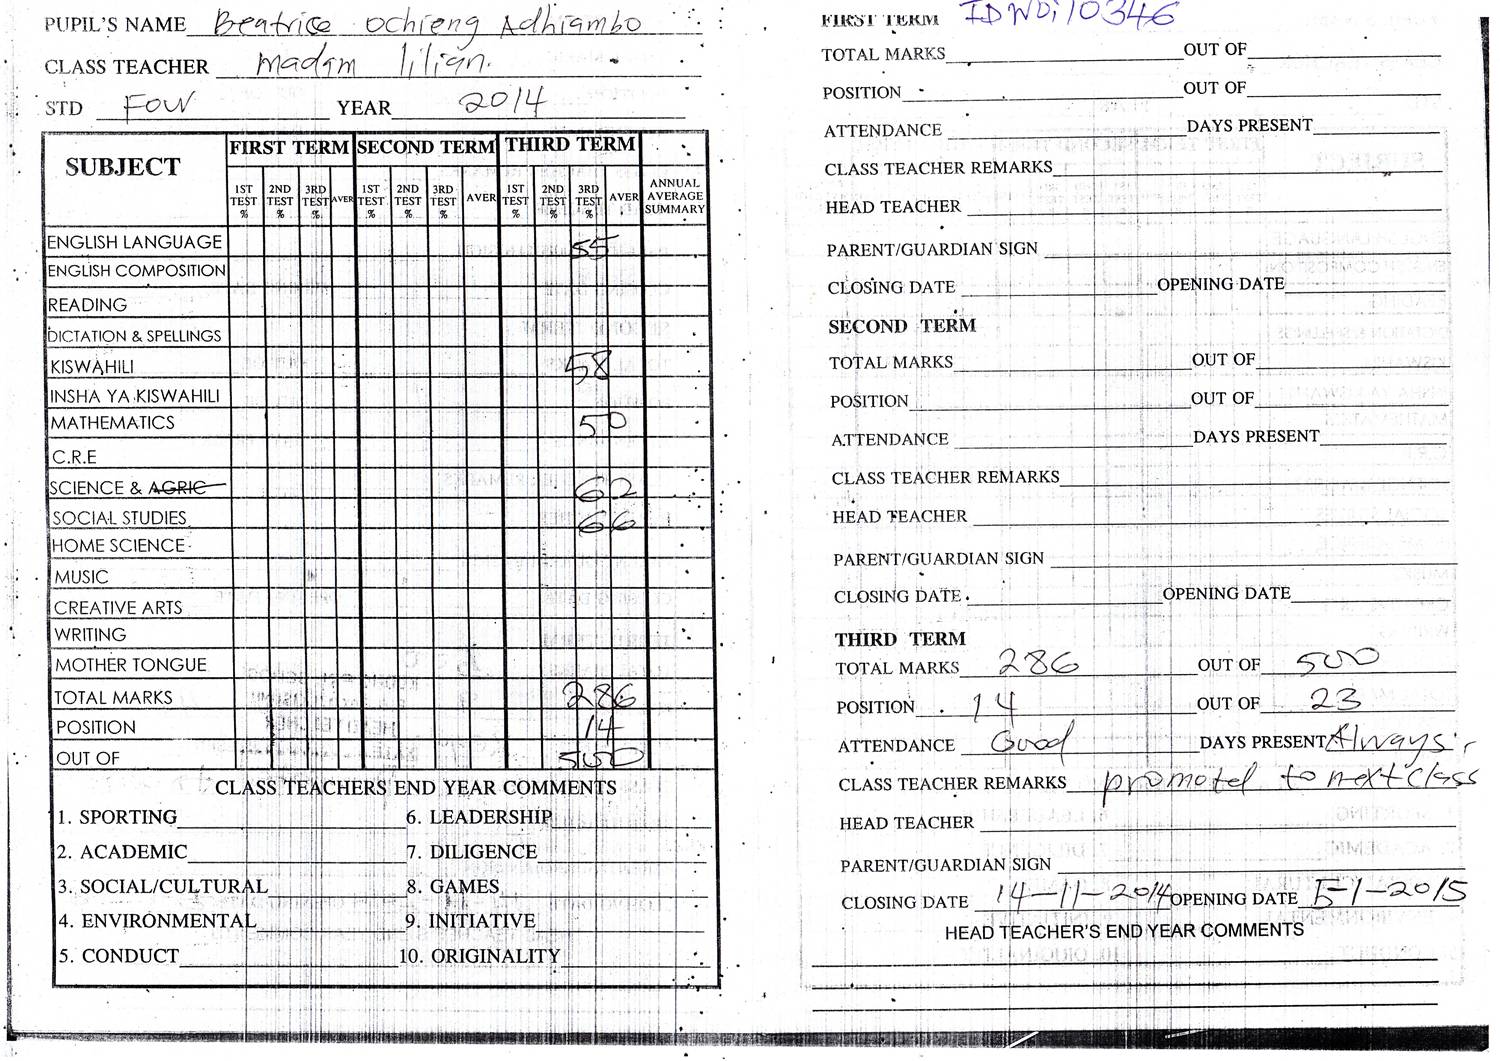 PUPIL'S NAME Beatrice Ochieng Adhiambo
CLASS TEACHER Madam lilian.
STD Four YEAR 2014
SUBJECT FIRST TERM SECOND TERM THIRD TERM
1ST TEST % 2ND TEST % 3RD TEST % AVER 1ST TEST % 2ND TEST % 3RD TEST % AVER 1ST TEST % 2ND TEST % 3RD TEST % AVER ANNUAL AVERAGE SUMMARY
ENGLISH LANGUAGE 55
ENGLISH COMPOSITION
READING
DICTATION & SPELLINGS
KISWAHILI 58
INSHA YA KISWAHILI
MATHEMATICS 50
C.R.E
SCIENCE & AGRIC 62
SOCIAL STUDIES 66
HOME SCIENCE
MUSIC
CREATIVE ARTS
WRITING
MOTHER TONGUE
TOTAL MARKS 286
POSITION 14
OUT OF 500
CLASS TEACHERS END YEAR COMMENTS
1. SPORTING 6. LEADERSHIP
2. ACADEMIC 7. DILIGENCE
3. SOCIAL/CULTURAL 8. GAMES
4. ENVIRONMENTAL 9. INITIATIVE
5. CONDUCT 10. ORIGINALITY
FIRST TERM IDWDi10346
TOTAL MARKS OUT OF
POSITION OUT OF
ATTENDANCE DAYS PRESENT
CLASS TEACHER REMARKS
HEAD TEACHER
PARENT/GUARDIAN SIGN
CLOSING DATE OPENING DATE
SECOND TERM
TOTAL MARKS OUT OF
POSITION OUT OF
ATTENDANCE DAYS PRESENT
CLASS TEACHER REMARKS
HEAD TEACHER
PARENT/GUARDIAN SIGN
CLOSING DATE OPENING DATE
THIRD TERM
TOTAL MARKS 286 OUT OF 500
POSITION 14 OUT OF 23
ATTENDANCE Good DAYS PRESENT Always
CLASS TEACHER REMARKS promoted to next class
HEAD TEACHER
PARENT/GUARDIAN SIGN
CLOSING DATE 14-11-2014 OPENING DATE 5-1-2015
HEAD TEACHER'S END YEAR COMMENTS